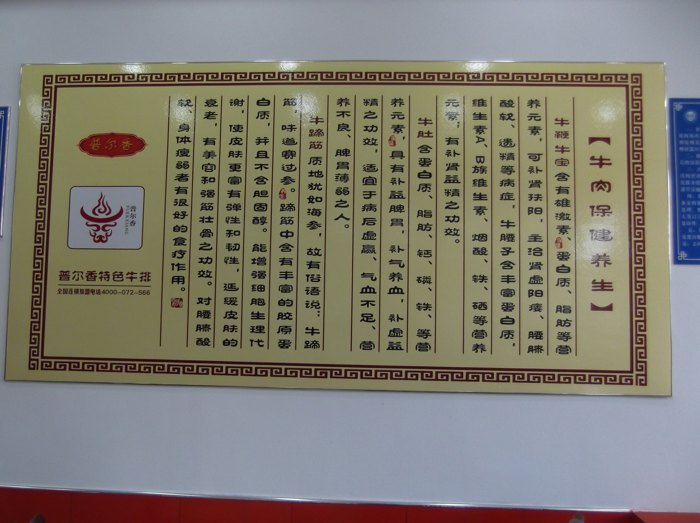 【牛肉保健养生】
牛鞭牛宝含有雄激素,蛋白质、脂肪等营
养元素,可补肾扶阳,主治肾虚阳痿、腰膝
酸软、遗精等病症,牛腰子含丰富蛋白质,
维生素A、B族维生素、烟酸、铁、硒等营养
元素,有补肾益精之功效。
牛肚含蛋白质、脂肪、钙、磷、铁、等营
养元素,具有补益脾胃,补气养血,补虚益
精之功效,适宜于病后虚羸、气血不足、营
养不良、脾胃薄弱之人。
牛蹄筋质地犹如海参,故有俗语说:牛蹄
筋,味道赛过参。蹄筋中含有丰富的胶原蛋
白质,并且不含胆固醇。能增强细胞生理代
谢,使皮肤更富有弹性和韧性,延缓皮肤的
衰老,有美容和强筋壮骨之功效。对腰膝酸
软、身体瘦弱者有很好的食疗作用。
普尔香
普尔香
普尔香特色牛排
全国连锁加盟电话4000-072-566